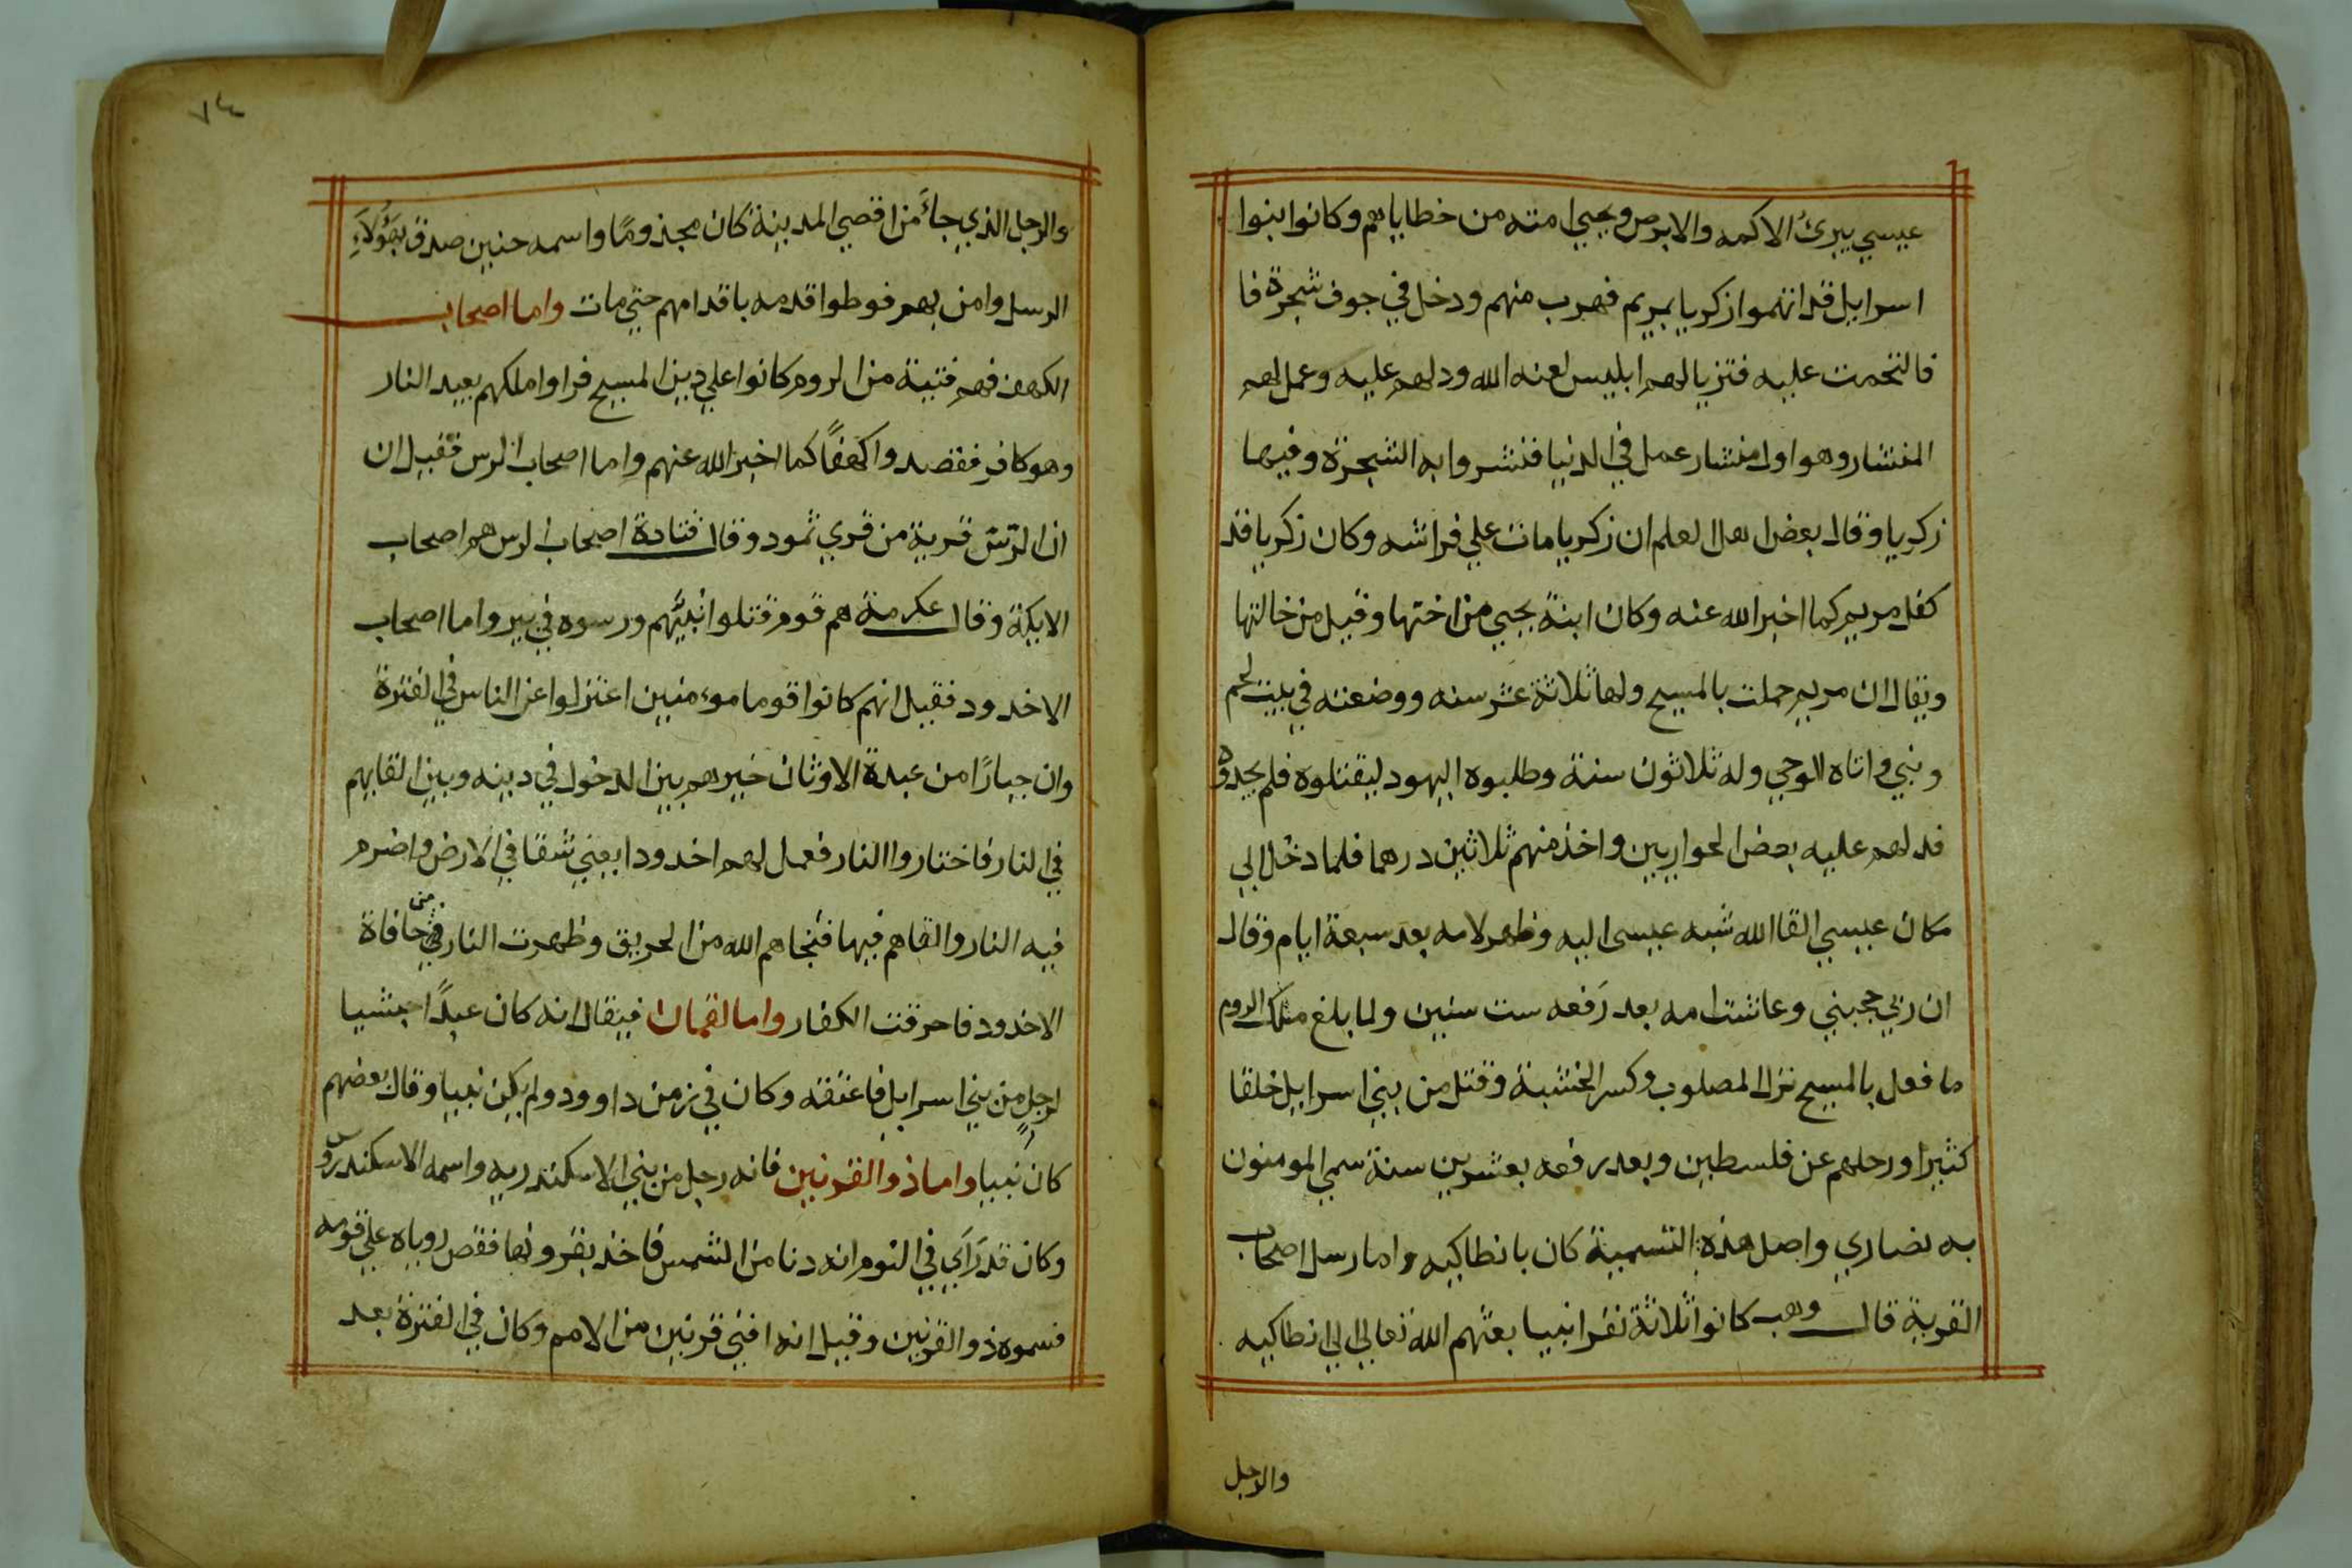 عيسي يبرئ الاكمه والابرص ويحيي امته من خطاياهم وكانوا بنوا
اسرايل قد اتهموا زكريا بمريم فهرب منهم ودخل في جوف شجرة فا
فالتحمت عليه فتزيا لهم ابليس لعنه الله ودلهم عليه وعمل لهم
المنشار وهو اول منشار عمل في الدنيا فنشروا به الشجرة وفيها
زكريا وقال بعض اهل العلم ان زكريا مات علي فراشه وكان زكريا قد
كفل مريم كما اخبر الله عنه وكان ابنة يحيي من اختها وقيل من خالتها
ويقال ان مريم حملت بالمسيح ولها ثلاثة عشر سنه ووضعته في بيت لحم
ونبي واتاه الوحي وله ثلاثون سنة وطلبوه اليهود ليقتلوه فلم يجدوه
فدلهم عليه بعض الحواريين واخذ منهم ثلاثين درهما فلما دخل الي
مكان عيسي القا الله شبه عيسى اليه وظهر لامه بعد سبعة ايام وقال
ان ربي حجبني وعاشت امه بعد رَفعه ست سنين ولما بلغ ملك الروم
ما فعل بالمسيح نزل المصلوب وكسر الخشبة وقتل من بني اسرايل خلقا
كثيرا ورحلهم عن فلسطين وبعد رفعه بعشرين سنة سمي المومنون
به نصاري واصل هذه التسمية كان بانطاكيه واما رسل اصحاب
القرية قال وهب كانوا ثلاثة نفر انبيا بعثهم الله تعالي الي انطاكيه
والرجل
٧٤
والرجل الذي جاءَ من اقصي المدينة كان مجذومًا واسمه حنين صدق بهؤُلاَءِ
الرسل وامن بهم فوطوا قدمه باقدامهم حتي مات واما اصحاب
الكهف فهم فتية من الروم كانوا علي دين المسيح فراوا ملكهم يعبد النار
وهو كافر فقصدوا كهفًا كما اخبر الله عنهم واما اصحاب الرس فقيل ان
ان الرّسّ قرية من قري ثمود وقال قتادة اصحاب الرس هم اصحاب
الايكة وقال عكرمة هم قوم قتلوا نبيّهم ورسوه في بير واما اصحاب
الاخدود فقيل انهم كانوا قوما مومنين اعتزلوا عن الناس في الفترة
وان جبارًا من عبدة الاوثان خيرهم بين الدخول في دينه وبين القايهم
في النار فاختاروا النار فعمل لهم اخدودا يعني شقا في الارض واضرم
فيه النار والقاهم فيها فنجاهم الله من الحريق وظهرت النار في حافاة
الاخدود فاحرقت الكفار واما لقمان فيقال انه كان عبدًا حبشيا
لرجلٍ من بني اسرايل فاعتقه وكان في زمن داوود ولم يكن نبيا وقال بعضهم
كان نبيا واما ذو القرنين فانه رجل من بني الاسكندريه واسمه الاسكندروس
وكان قد رَأي في النوم انه دنا من الشمس فاخذ بقرونها فقص روياه علي قومه
فسموه ذو القرنين وقيل انه افني قرنين من الامم وكان في الفترة بعد